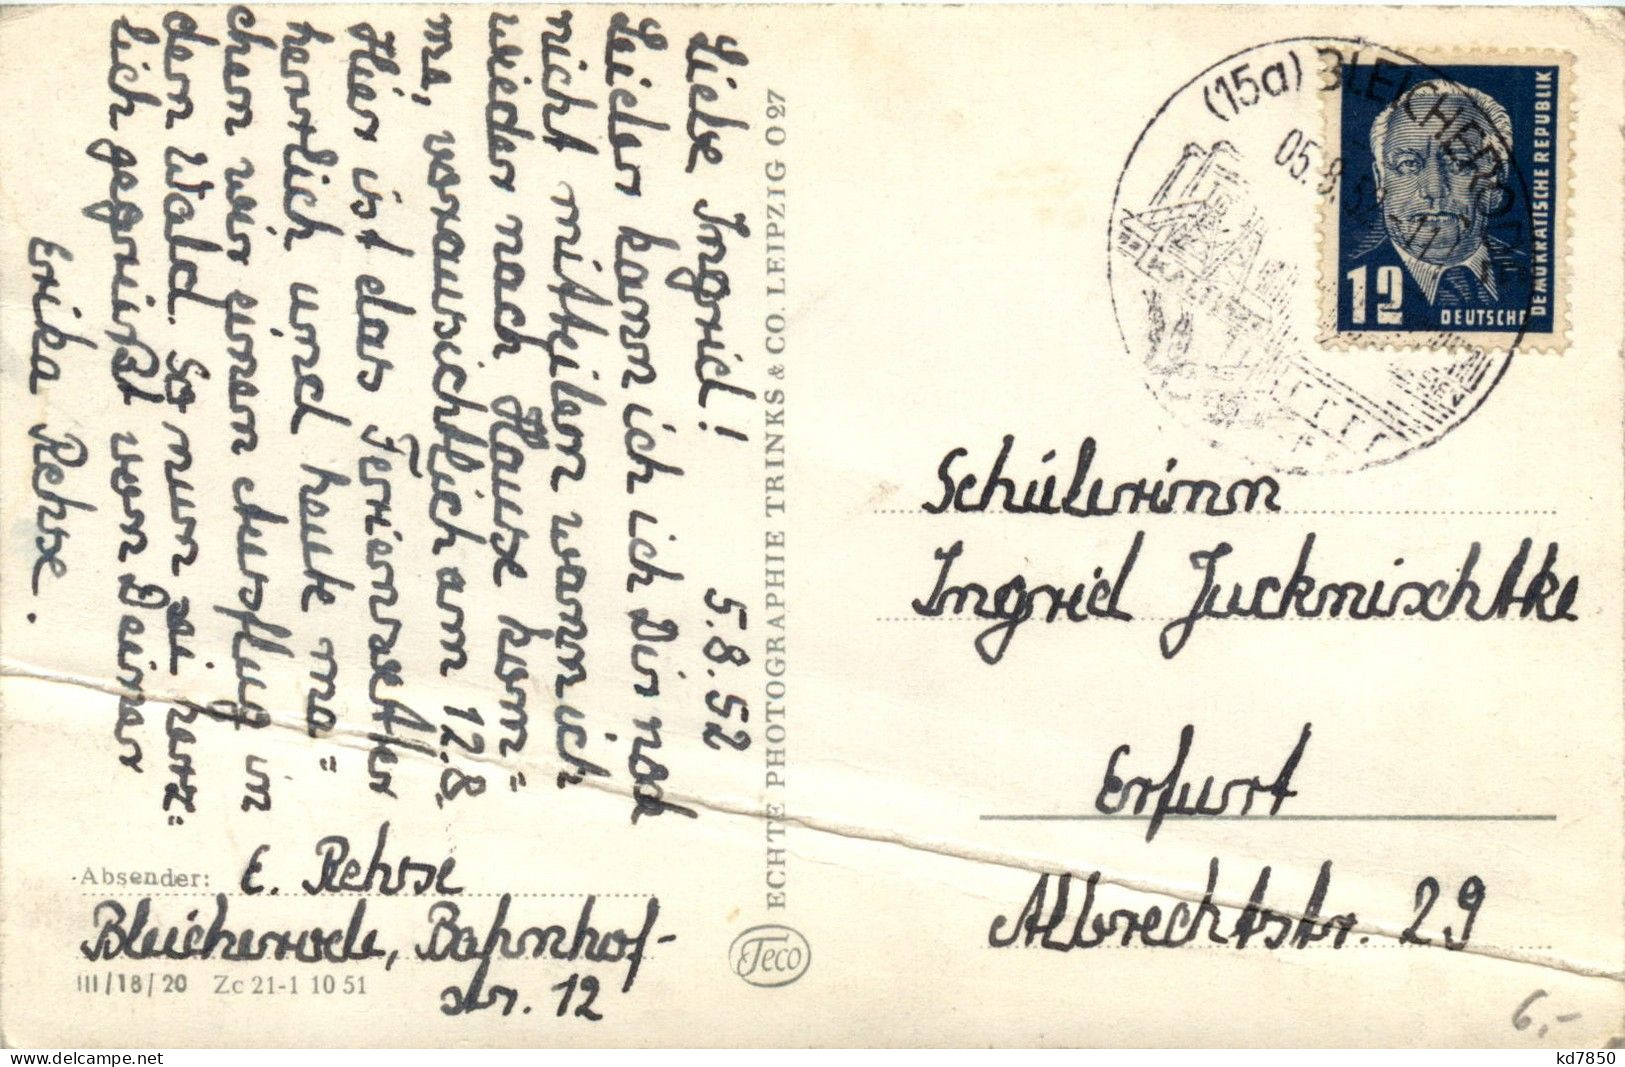 5.8.52
Liebe Ingrid!
Leider kann ich ich Dir noch
nicht mitteilen wann ich
wieder nach Hause kom=
me, voraussichtlich am 12.8.
Hier ist das Ferienwetter
herrlich und heute ma=
chen wir einen Ausflug in
den Wald. So nun sei herz=
lich gegrüßt von Deiner
Erika Rehse.
Absender: E. Rehse
Bleicherode, Bahnhof-
str. 12
III/18/20 Zc 21-1 10 51
ECHTE PHOTOGRAPHIE TRINKS & CO. LEIPZIG O 27
Teco
(15a) BLEICHERODE
05.8.52-17
12
DEUTSCHE
DEMOKRATISCHE REPUBLIK
Schülerinn
Ingrid Jucknischtke
Erfurt
Albrechtstr. 29
6,-
kd7850